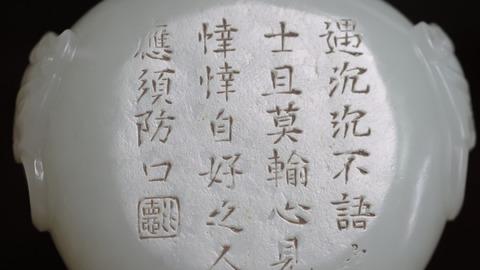 遇沉沉不語之
士且莫輸心見
悻悻自好之人
應須防口